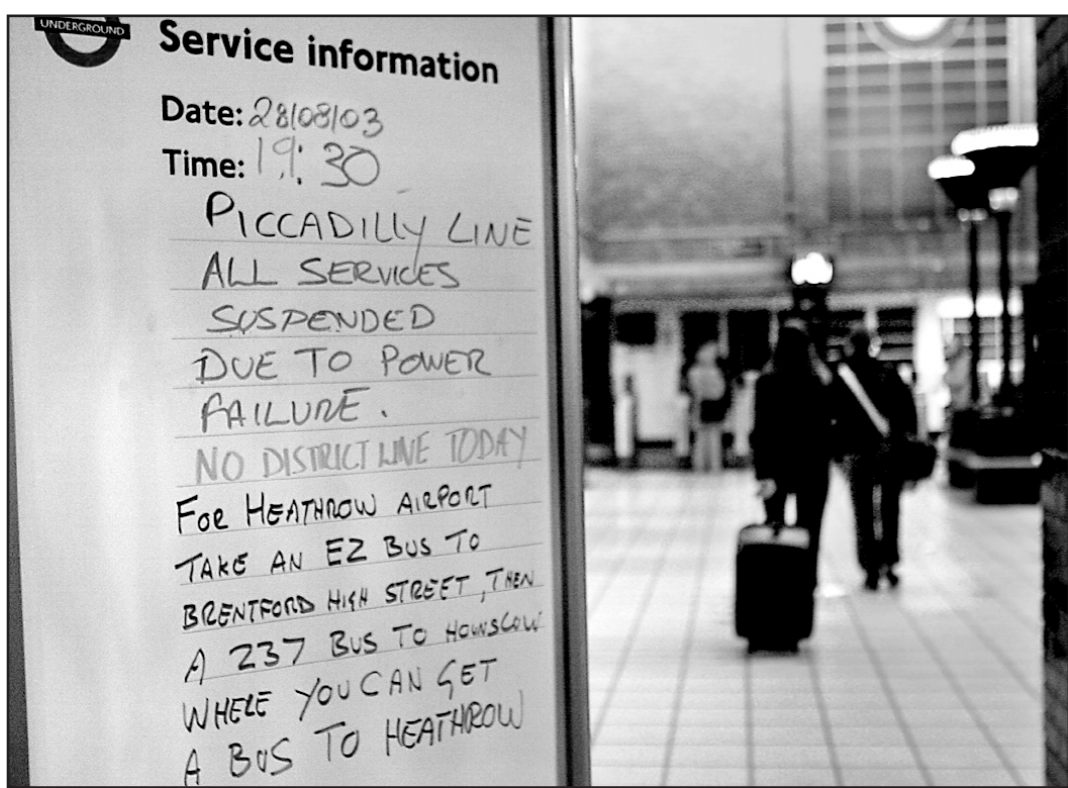 UNDERGROUND
Service information
Date: 28/08/03
Time: 19:30
PICCADILLY LINE
ALL SERVICES
SUSPENDED
DUE TO POWER
FAILURE.
NO DISTRICT LINE TODAY
FOR HEATHROW AIRPORT
TAKE AN E2 BUS TO
BRENTFORD HIGH STREET, THEN
A 237 BUS TO HOUNSLOW
WHERE YOU CAN GET
A BUS TO HEATHROW